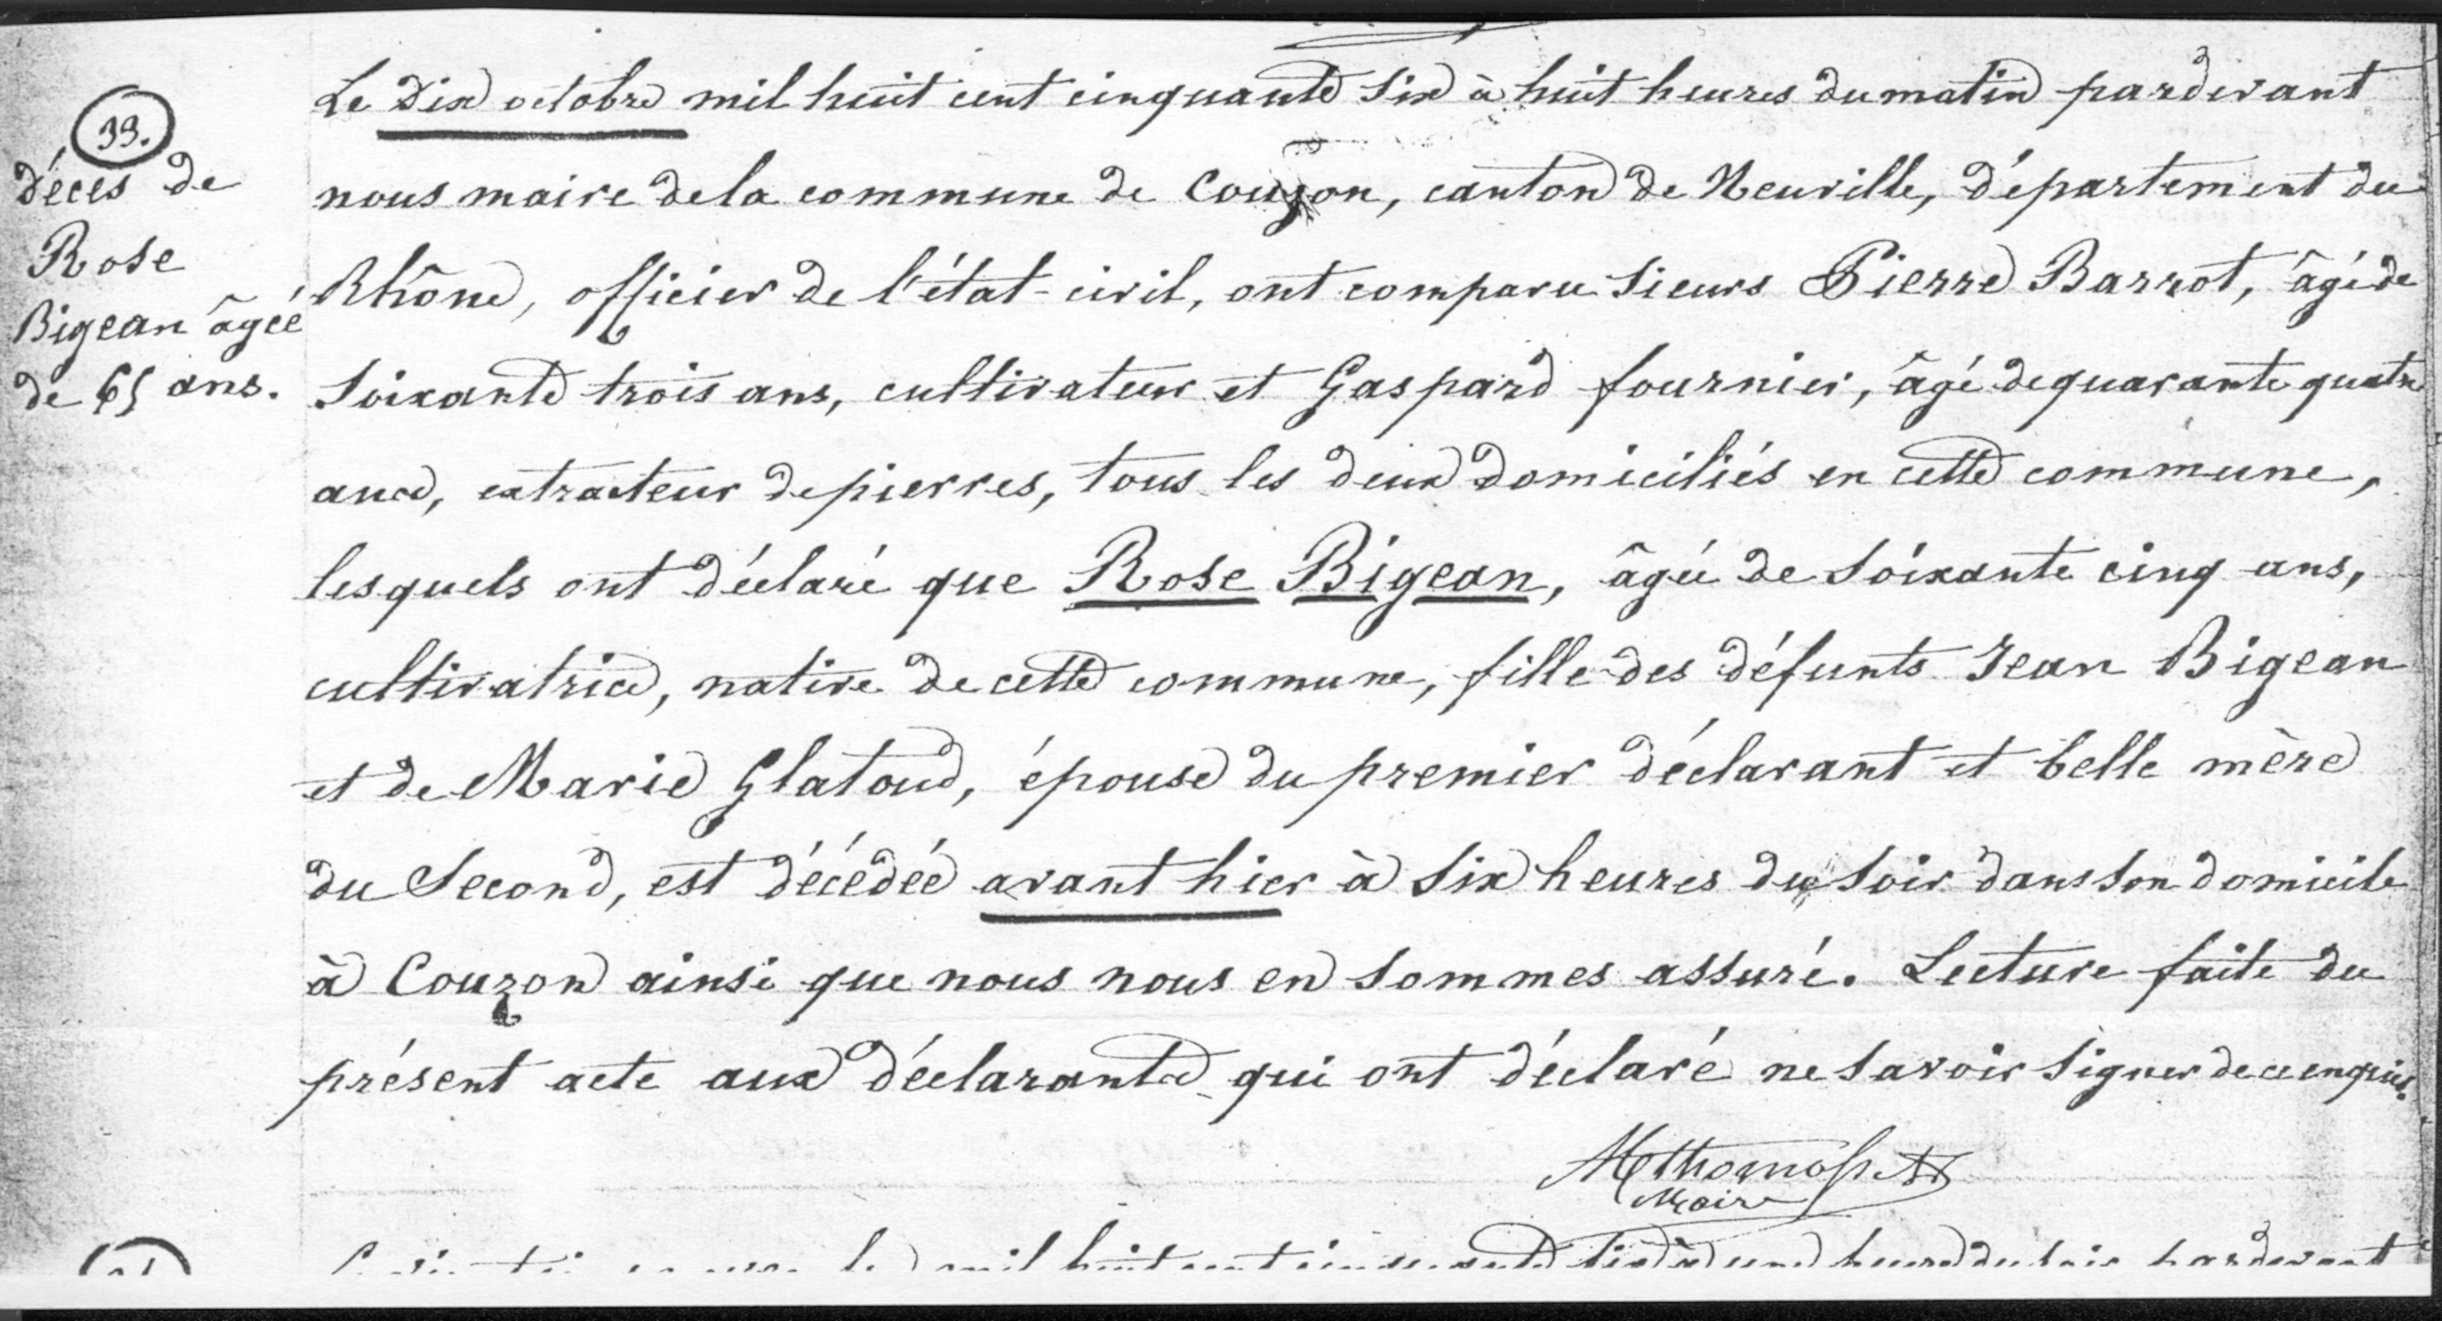 33.
décès de
Rose
Bigean âgée
de 65 ans.
Le dix octobre mil huit cent cinquante six à huit heures du matin pardevant
nous maire de la commune de Couzon, canton de Neuville, département du
Rhône, officier de l'état-civil, ont comparu sieurs Pierre Barrot, âgé de
soixante trois ans, cultivateur et Gaspard fournier, âgé de quarante quatre
ans, extracteur de pierres, tous les deux domiciliés en cette commune,
lesquels ont déclaré que Rose Bigean, âgée de soixante cinq ans,
cultivatrice, native de cette commune, fille des défunts Jean Bigean
et de Marie Glatoud, épouse du premier déclarant et belle mère
du second, est décédée avant hier à six heures du soir dans son domicile
à Couzon ainsi que nous nous en sommes assuré. Lecture faite du
présent acte aux déclarants qui ont déclaré ne savoir signer de ce enquis.
Maire
mil huit cent cinquante six à une heure du soir pardevant